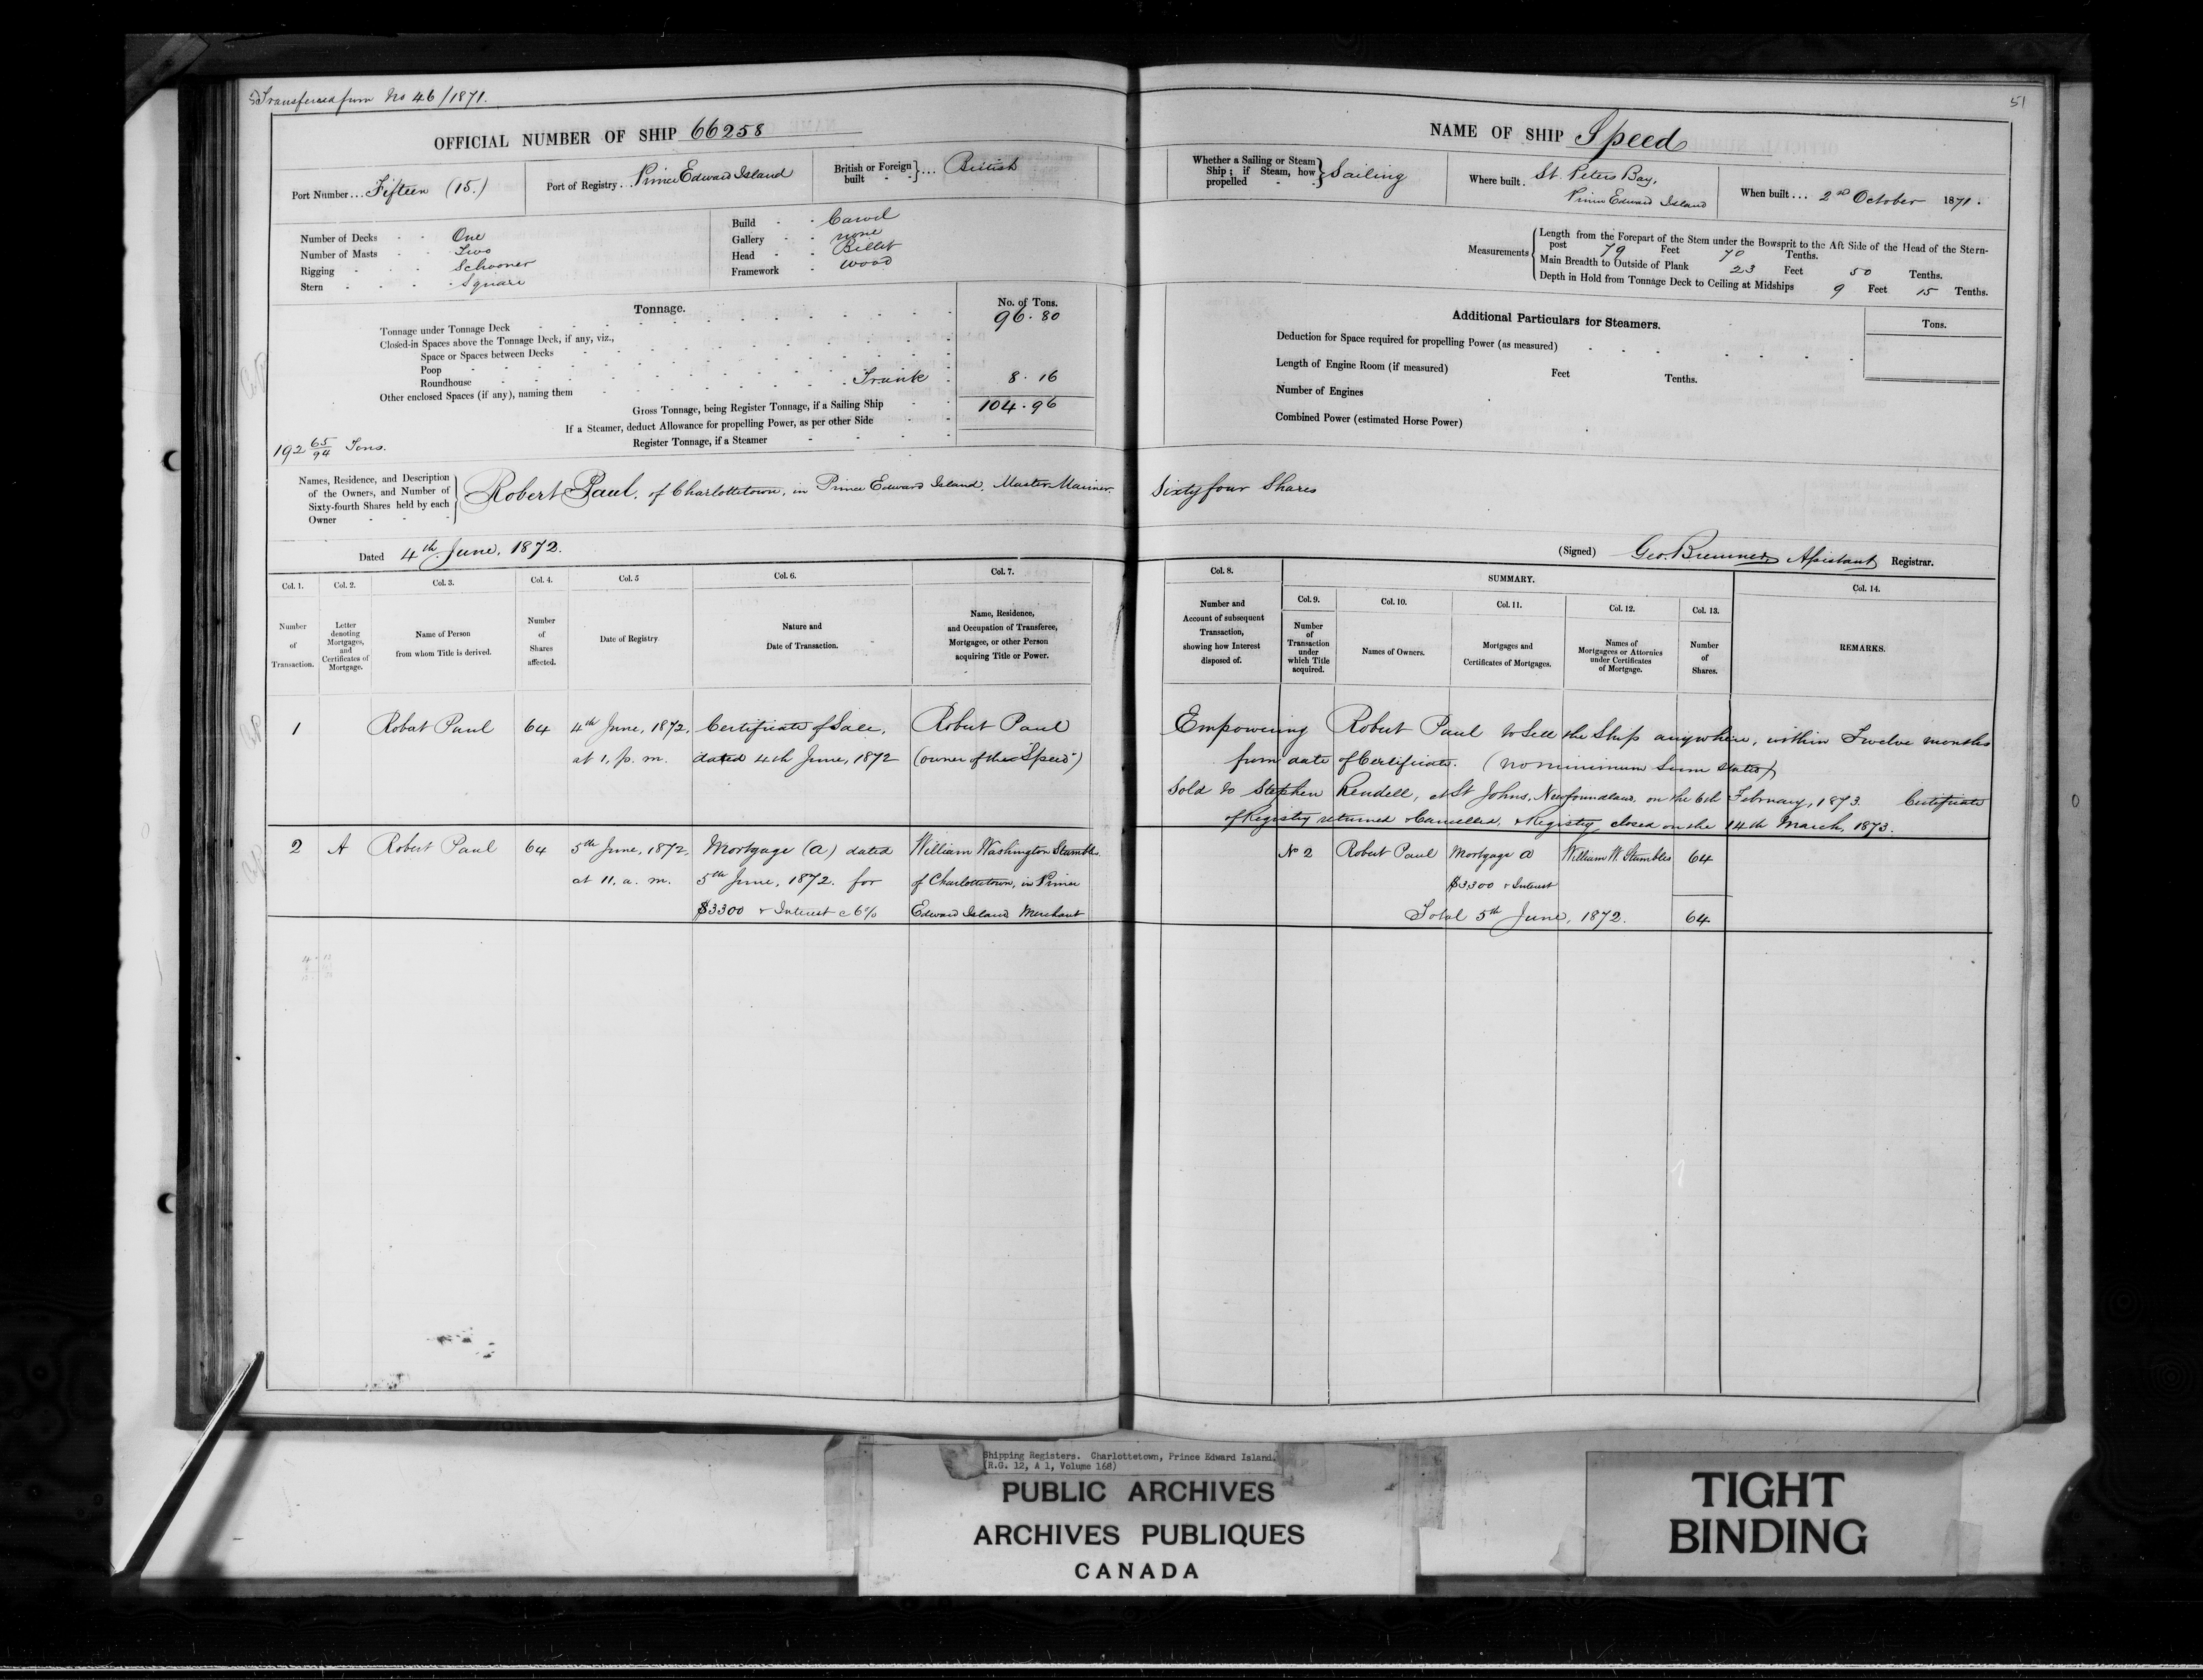 Transferred from No 46/1871.
51
OFFICIAL NUMBER OF SHIP 66258
NAME OF SHIP Speed
Port Number ... Fifteen (15.)
Port of Registry ... Prince Edward Island
British or Foreign built } ... British
Whether a Sailing or Steam Ship; if Steam, how propelled } Sailing
Where built . St. Peters Bay, Prince Edward Island
When built ... 2nd October 1871.
Number of Decks One
Number of Masts Two
Rigging Schooner
Stern Square
Build Carvel
Gallery none
Head Billet
Framework wood
Measurements
Length from the Forepart of the Stem under the Bowsprit to the Aft Side of the Head of the Stern-
post 79 Feet 70 Tenths.
Main Breadth to Outside of Plank 23 Feet 50 Tenths.
Depth in Hold from Tonnage Deck to Ceiling at Midships 9 Feet 15 Tenths.
Tonnage. No. of Tons.
Tonnage under Tonnage Deck 96.80
Closed-in Spaces above the Tonnage Deck, if any, viz.,
Space or Spaces between Decks
Poop
Roundhouse
Other enclosed Spaces (if any), naming them Trunk 8.16
Gross Tonnage, being Register Tonnage, if a Sailing Ship 104.96
If a Steamer, deduct Allowance for propelling Power, as per other Side
Register Tonnage, if a Steamer
192 65/94 Tons.
Additional Particulars for Steamers.
Tons.
Deduction for Space required for propelling Power (as measured)
Length of Engine Room (if measured) Feet Tenths.
Number of Engines
Combined Power (estimated Horse Power)
Names, Residence, and Description
of the Owners, and Number of
Sixty-fourth Shares held by each
Owner
Robert Paul, of Charlottetown, in Prince Edward Island, Master Mariner. Sixty four Shares
Dated 4th June, 1872.
(Signed) Geo. Bremner, Assistant Registrar.
Col. 1. Number of Transaction.
Col. 2. Letter denoting Mortgages, and Certificates of Mortgage.
Col. 3. Name of Person from whom Title is derived.
Col. 4. Number of Shares affected.
Col. 5 Date of Registry.
Col. 6. Nature and Date of Transaction.
Col. 7. Name, Residence, and Occupation of Transferee, Mortgagee, or other Person acquiring Title or Power.
Col. 8. Number and Account of subsequent Transaction, showing how Interest disposed of.
SUMMARY.
Col. 9. Number of Transaction under which Title acquired.
Col. 10. Names of Owners.
Col. 11. Mortgages and Certificates of Mortgages.
Col. 12. Names of Mortgagees or Attornies under Certificates of Mortgage.
Col. 13. Number of Shares.
Col. 14. REMARKS.
1 Robert Paul 64 4th June, 1872, Certificate of Sale, Robert Paul
at 1, p. m. dated 4th June, 1872 (owner of the "Speed")
Empowering Robert Paul to Sell the Ship anywhere, within Twelve months
from date of Certificate. (no minimum Sum stated)
Sold to Stephen Rendell, at St Johns, Newfoundland, on the 6th February, 1873. Certificate
of Registry returned & Cancelled, & Registry closed on the 14th March, 1873.
2 A Robert Paul 64 5th June, 1872, Mortgage (A) dated William Washington Stumbles
at 11, a. m. 5th June, 1872. for of Charlottetown, in Prince
$3300 & Interest @ 6% Edward Island Merchant
No 2 Robert Paul Mortgage A William W. Stumbles 64
$3300 & Interest
Total 5th June, 1872. 64
Shipping Registers. Charlottetown, Prince Edward Island,
(R.G. 12, A 1, Volume 168)
PUBLIC ARCHIVES
ARCHIVES PUBLIQUES
CANADA
TIGHT
BINDING